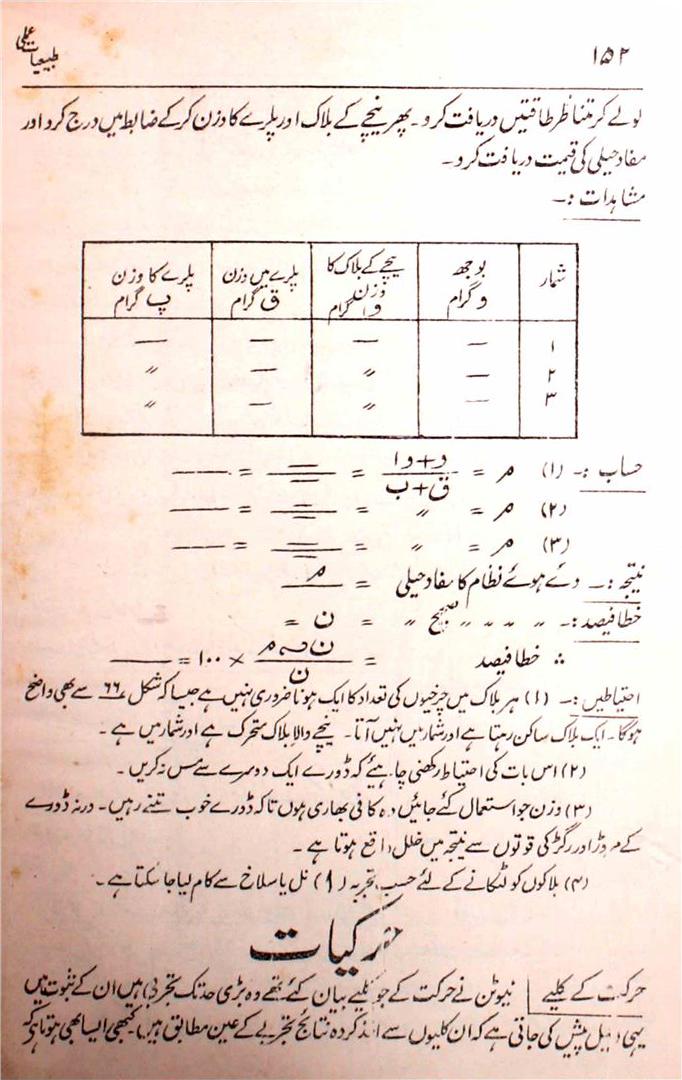 ۱۵۲
طبیعیات عملی
لے کر متناظر طاقتیں دریافت کرو۔ پھر نیچے کے بلاک اور پلڑے کا وزن کرکے ضابط میں درج کرد اور
مفاد حیلی کی قیمت دریافت کرو۔
مشاہدات :۔
شمار | بوجھ و گرام | نیچے کے بلاک کا وزن و۱ گرام | پلڑے میں وزن ق گرام | پلڑے کا وزن پ گرام
۱ — — — —
۲ — 〃 — 〃
۳ — 〃 — 〃
حساب :۔ (۱) م = و+و۱ / ق+ب = — = —
(۲) م = 〃 = — = —
(۳) م = 〃 = — = —
نتیجہ :۔ دئے ہوئے نظام کا مفاد حیلی = م
خطا فیصد :۔ 〃 〃 〃 〃 صحیح 〃 = ن =
∴ خطا فیصد = ن ~ م / ن × ۱۰۰ = —
احتیاطیں :۔ (۱) ہر بلاک میں چرخیوں کی تعداد کا ایک ہونا ضروری نہیں ہے جیسا کہ شکل ۶۶ سے بھی واضح
ہوگا۔ ایک بلاک ساکن رہتا ہے اور شمار میں نہیں آتا۔ نیچے والا بلاک متحرک ہے اور شمار میں ہے۔
(۲) اس بات کی احتیاط رکھنی چاہیئے کہ ڈورے ایک دوسرے سے مس نہ کریں۔
(۳) وزن جو استعمال کئے جائیں وہ کافی بھاری ہوں تاکہ ڈورے خوب تنے رہیں۔ ورنہ ڈورے
کے مروڑ اور رگڑ کی قوتوں سے نتیجہ میں خلل واقع ہوتا ہے۔
(۴) بلاکوں کو لٹکانے کے لئے حسب تجربہ (۹) نل یا سلاخ سے کام لیا جا سکتا ہے۔
حرکیات
حرکت کے کلیے نیوٹن نے حرکت کے جو کلیے بیان کئے تھے وہ بڑی حد تک تجربی ہیں ان کے ثبوت میں
یہی دلیل پیش کی جاتی ہے کہ ان کلیوں سے اخذ کردہ نتائج تجربے کے عین مطابق ہیں کبھی ایسا بھی ہوتا ہے کہ